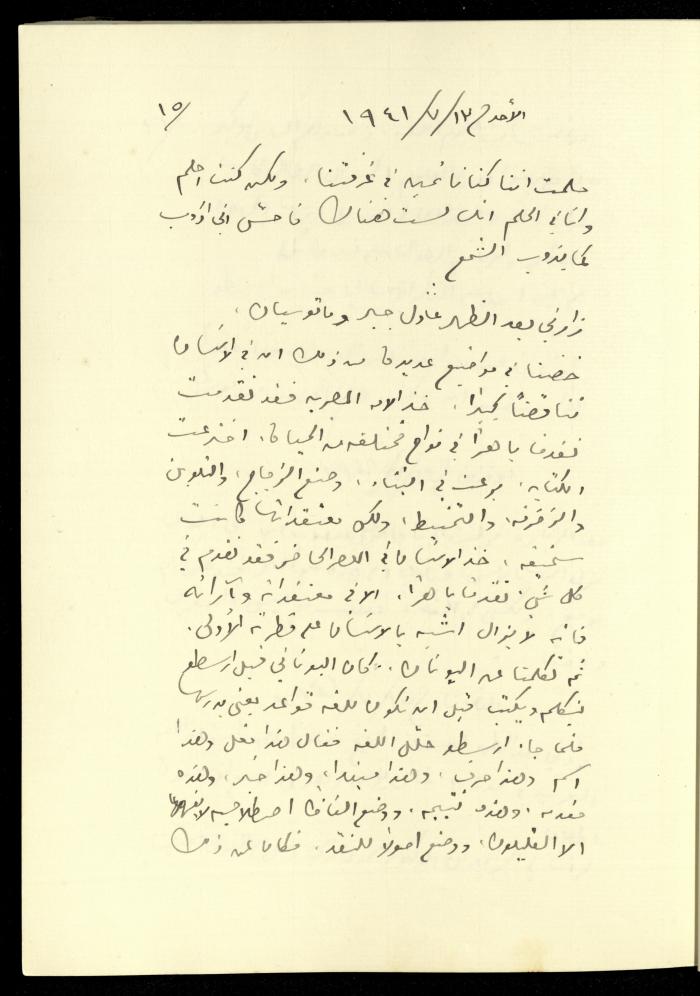 الأحد في ١٣/٧/١٩٤١ ١٥/
حلمت اننا كنا نائمين في غرفتنا، ولكن كنت احلم
وانا في الحلم انك لست هناك فاحسّ اني اذوب
كما يذوب الشمع
زارني بعد الظهر عادل جبر وماتوسيان،
خضنا في مواضيع عديدة من ذلك ان في الانسان
تناقضاً كبيراً، خذ الامة المصرية فقد تقدمت
تقدماً باهراً في نواح مختلفة من الحياة، اخترعت
الكتابة، برعت في البناء، وصنع الزجاج، والتلوين
والزخرفة، والتحنيط، ولكن معتقداتها كانت
سخيفة، خذ الانسان في العصر الحاضر فقد تقدم في
كل شيء تقدماً باهراً، الا في معتقداته وآرائه
فانه لا يزال اشبه بالانسان على فطرته الأولى.
ثم تكلمنا عن اليونان، كان اليوناني قبل ارسطو
يتكلم ويكتب قبل ان تكون للغة قواعد يعنى بدرسها
فلما جاء ارسطو حلّل اللغة فقال هذا فعل وهذا
اسم وهذا حرف، وهذا مبتدا، وهذا خبر، وهذه
مقدمة، وهذه نتيجة، ووضع الفاظاً اصطلاحية لا يفهمها
الا القليلون، ووضع اصولاً للنقد، فكان عن ذلك